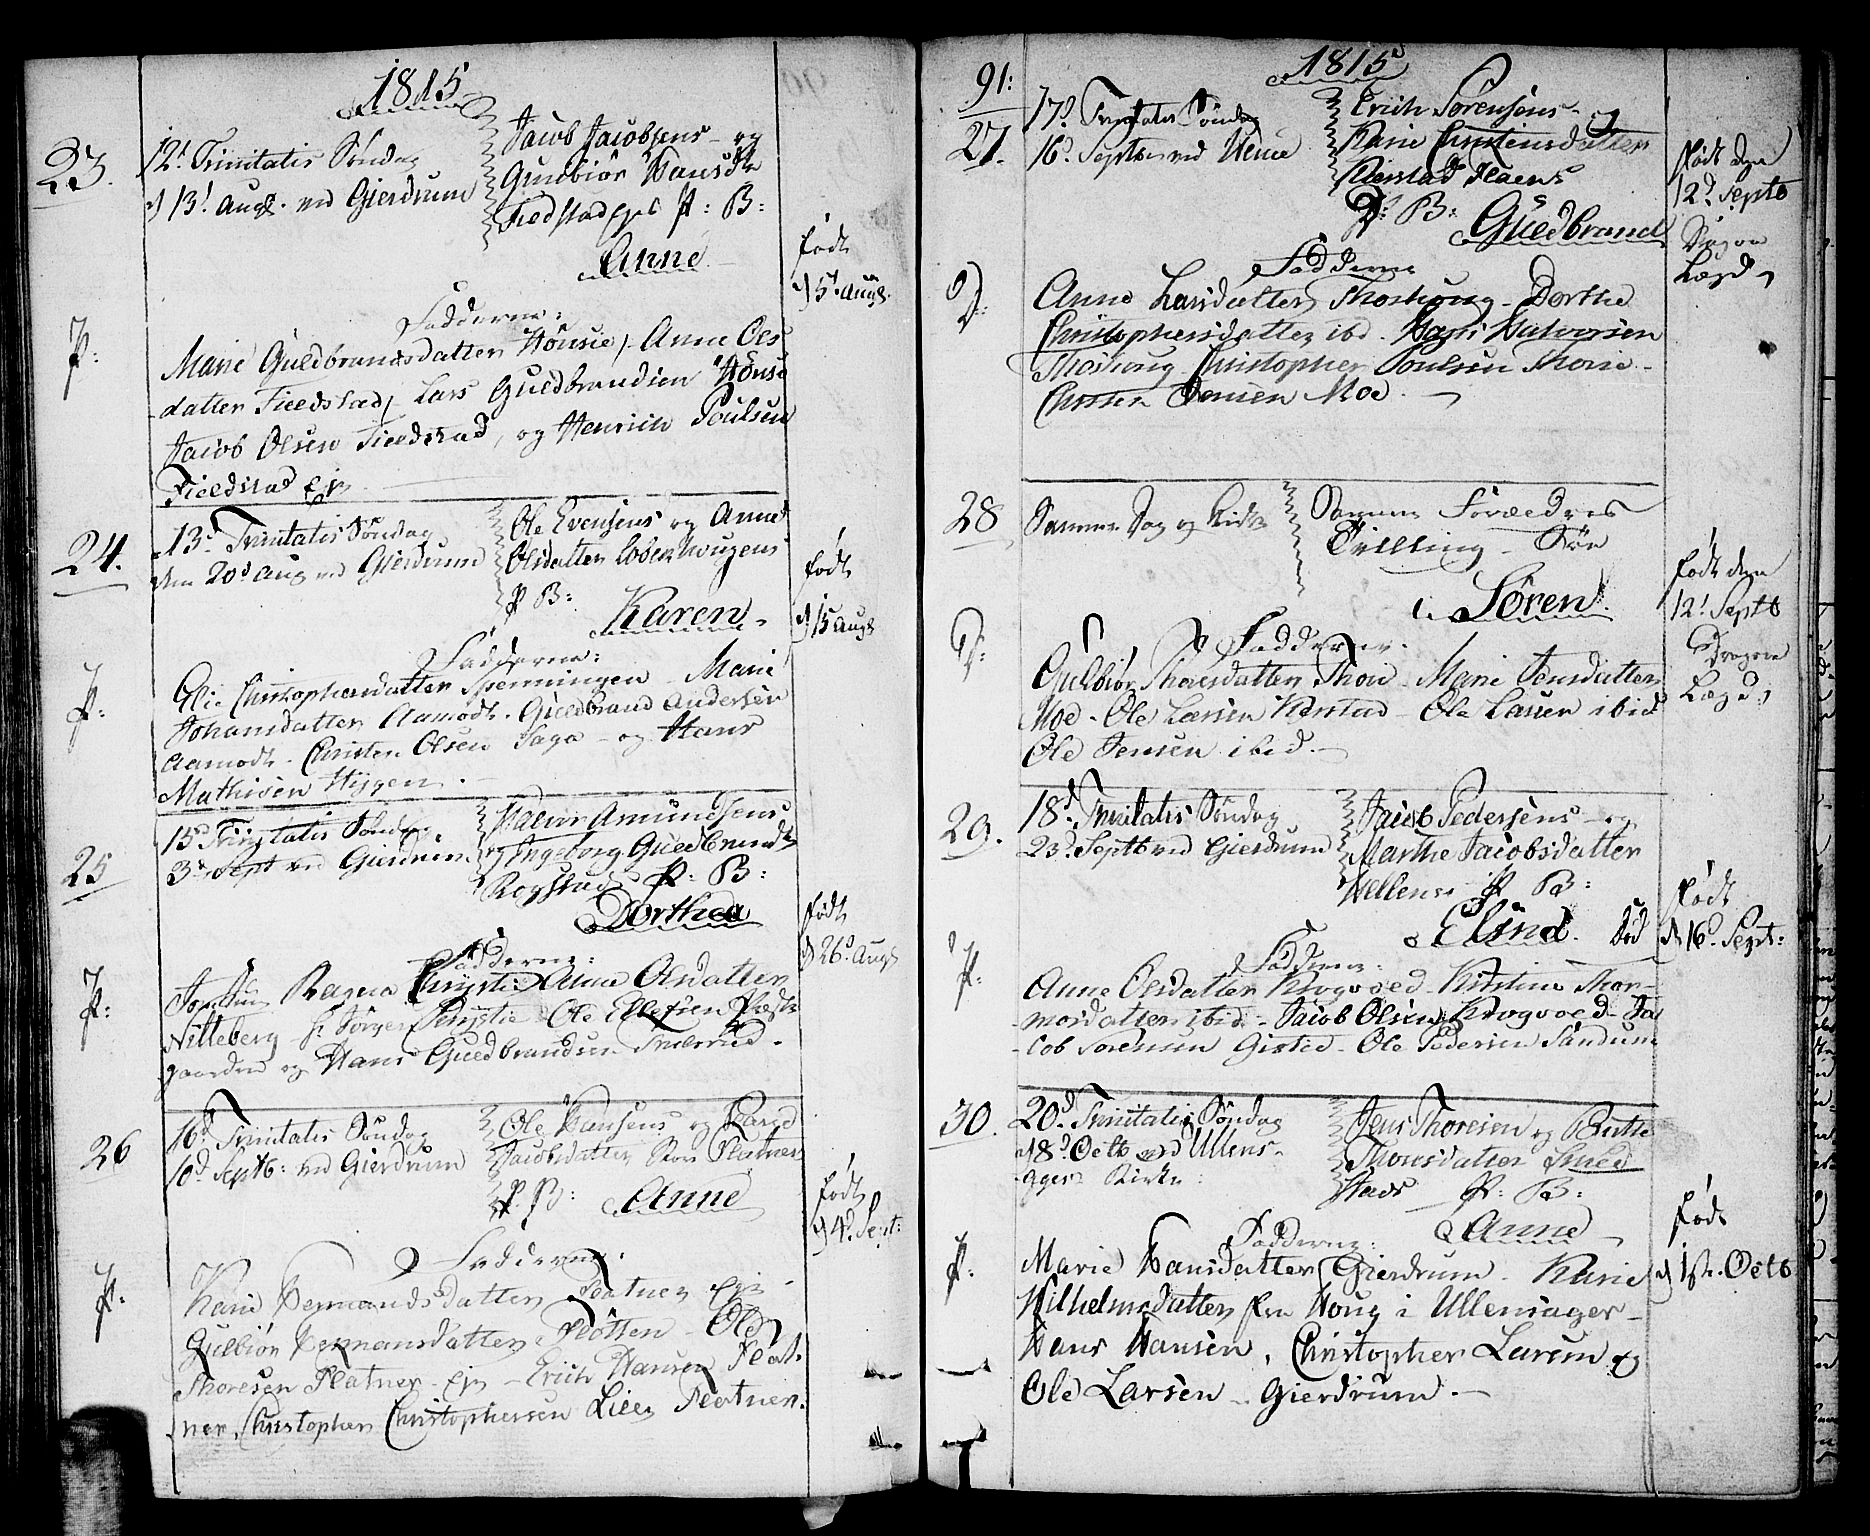 1815
23.
12t Trinitatis Søndag
d 13t Augs. ved Gierdrum
Jacob Jacobsens og
Gunbiør Hansdtr
Fiedstad Ejes P: B:
Anne
født
d 5t Augs.
P:
Fadderne:
Marie Guldbrandsdatter Hønsie, Anne Ols
datter Fieldstad, Lars Guldbrandsen Hønsie
Jacob Olsen Fieldstad, og Henrich Poulsen
Fieldstad Eje
24.
13d Trinitatis Søndag
den 20d Aug ved Gierdrum
Ole Evensens og Anne
Olsdatter
P B:
Karen
født
d 15 Augs
P:
Fadderne:
Christophersdatter Spenningen - Marie
Johansdatter Aamodt. Guldbrand Andersen
Aamodt - Christen Olsen Saga - og Hans
Mathisen Hygen.
25
15d Trinitatis Søndag
3d Sept ved Gierdrum
Halvor Amundsens
Ingeborg Guldbrandsdtr
Rogstad P: B:
Dorthea
født
d 26d Augs
P:
Fadderne:
Jomfrue Ragna Anna Olsdatter
Nitteberg - Hr Jørgen - Ole Ellefsen Præste
gaarden og Hans Guldbrandsen
26
16d Trinitatis Søndag
10d Septb: ved Gierdrum
Ole Hansens og Kari
Jacobsdatter Store Flatner
P. B:
Anne
født
d 4d Sept:
P:
Fadderne.
Karie Hermandsdatter Flatner Eje -
Gulbiør Hermansdatter Flotten - Ole
Thoresen Flatner - Eje - Erich Hansen Flat-
ner, Christopher Christophersen Lille Flatner.
91:
1815
27.
17d Trinitatis Søndag
16d Septb ved
Erich Sørensens -
Karie Christensdatter
Kierstad
D: B:
Guldbrand
født den
12d Septb
Dragon
Lægd
D:
Fadderne
Anne Larsdatter - Dorthe
Christophersdatter ibd. Halvorsen
Christopher Poulsen Thorie -
Christen Jensen Moe. -
28
Samme Dag og Kirke
Samme Forældres
Tvilling - Søn
Søren
født den
12t Septb
Dragon
Lægd:
D:
Fadderne.
Gulbiør Thoresdatter Thorie - Marie Jensdatter
Moe - Ole Larsen Kierstad - Ole Larsen ibid
Ole Jensen ibid. -
29.
18d Trinitatis Søndag
23d Septb ved Gierdrum
Jacob Pedersens og
Marthe Jacobsdatter
P B:
Elina. Død
født
d 16d Sept:
P:
Fadderne:
Anne Olsdatter Krogvoed - Kirstine Thor-
mosdatter ibid - Jacob Olsen Krogvoed - Ja
cob Sørensen - Ole Pedersen Sandum
30.
20d Trinitatis Søndag
d 8d Octb ved Ullens-
agers Kirke
Jens Thoresen og Berthe
Thoresdatter Smed
stads P: B:
Anne
født
d 1ste Octb
P:
Fadderne:
Marie Hansdatter Gierdrum. Karie
Wilhelmsdatter fra Houg i Ullensager -
Hans Hansen, Christopher Larsen og
Ole Larsen - Gierdrum. -